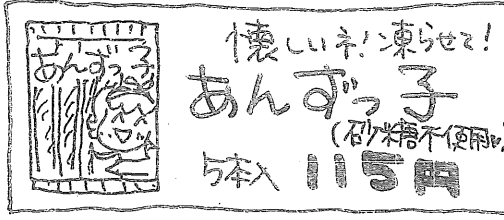 あんずっ子
懐しいネ!凍らせて!
あんずっ子
(砂糖不使用)
5本入 115円